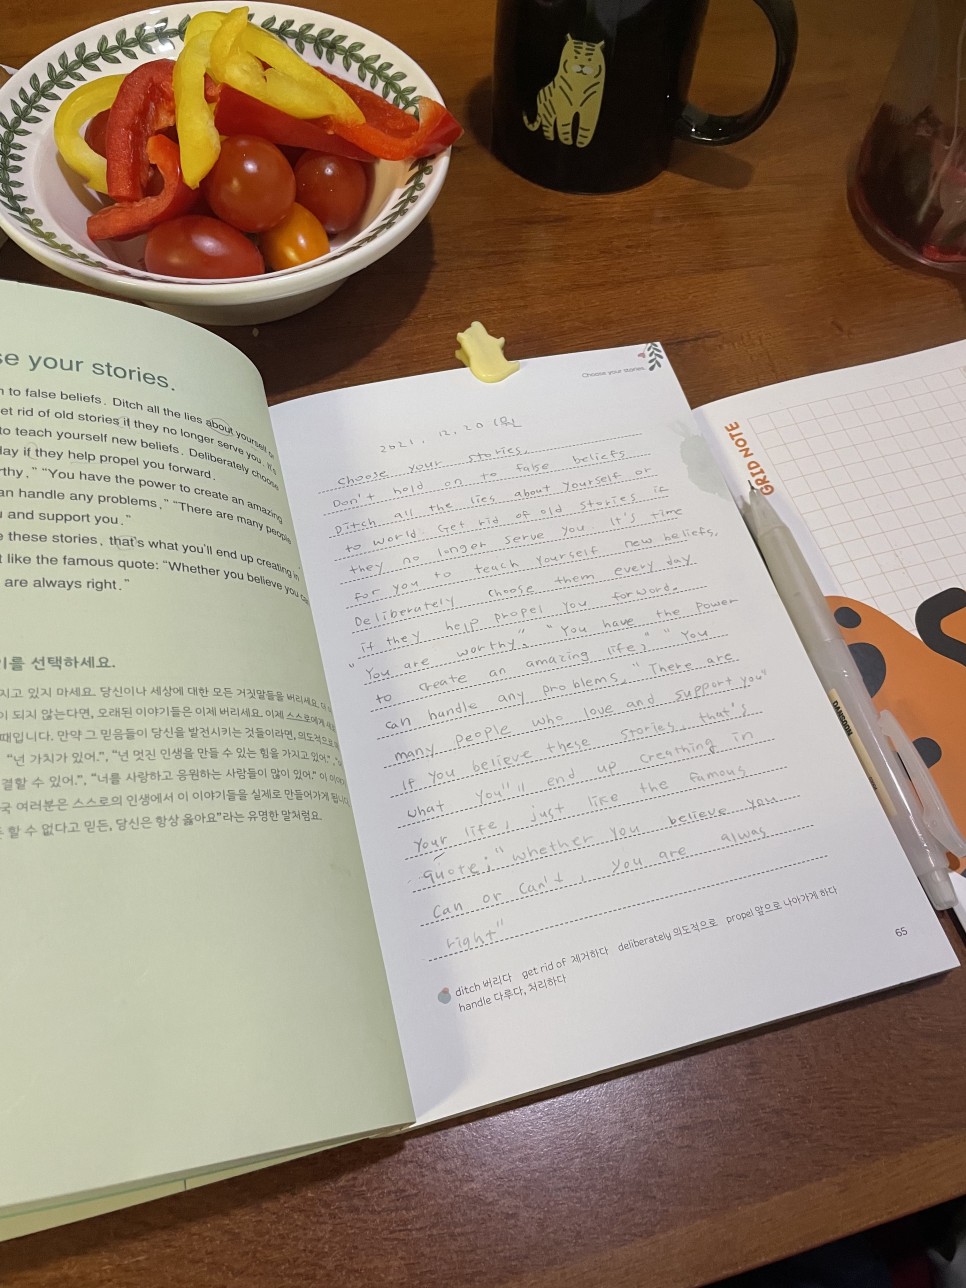 se your stories.
n to false beliefs. Ditch all the lies about yourself or
et rid of old stories if they no longer serve you. It's
to teach yourself new beliefs. Deliberately choose
day if they help propel you forward.
rthy." "You have the power to create an amazing
an handle any problems." "There are many people
u and support you."
e these stories, that's what you'll end up creating in
t like the famous quote: "Whether you believe you can
are always right."
이를 선택하세요.
지고 있지 마세요. 당신이나 세상에 대한 모든 거짓말들을 버리세요.
이 되지 않는다면, 오래된 이야기들은 이제 버리세요. 이제 스스로에게
때입니다. 만약 그 믿음들이 당신을 발전시키는 것들이라면, 의도적으로
"넌 가치가 있어.", "넌 멋진 인생을 만들 수 있는 힘을 가지고 있어.",
결할 수 있어.", "너를 사랑하고 응원하는 사람들이 많이 있어." 이
국 여러분은 스스로의 인생에서 이 이야기들을 실제로 만들어가게 됩니다.
든 할 수 없다고 믿든, 당신은 항상 옳아요"라는 유명한 말처럼요.
Choose your stories.
2021. 12. 20 (월)
choose your stories.
Don't hold on to false beliefs
Ditch all the lies about yourself or
to world. Get rid of old stories if
they no longer serve you. It's time
for you to teach yourself new beliefs.
Deliberately choose them every day
if they help propel you forword.
"You are worthy." "You have the power
to create an amazing life," "You
can handle any problems," "There are
many people who love and support you"
If you believe these stories, that's
what you"ll end up creathing in
your life, just like the famous
quote; "whether you believe you
can or can't, you are alwas
right"
ditch 버리다 get rid of 제거하다 deliberately 의도적으로 propel 앞으로 나아가게 하다
handle 다루다, 처리하다
65
GRID NOTE